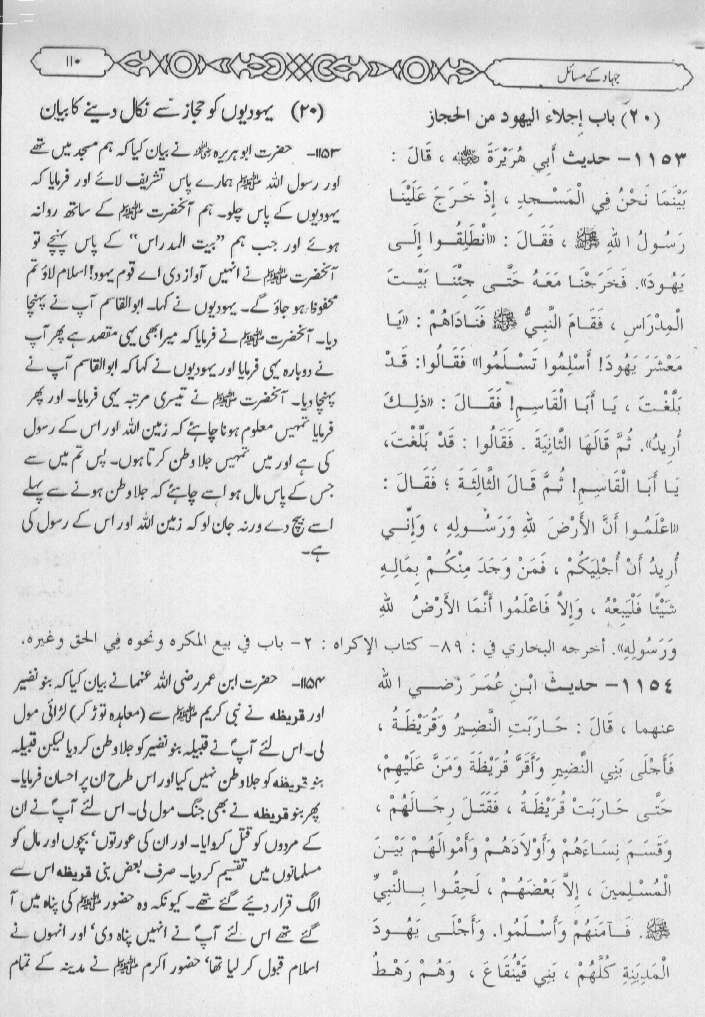 جہاد کے مسائل
۱۱۰
(٢٠) باب إجلاء اليهود من الحجاز
١١٥٣- حديث أَبِي هُرَيْرَةَ ﷺ ، قَالَ :
بَيْنَمَا نَحْنُ فِي الْمَسْجِدِ ، إِذْ خَرَجَ عَلَيْنَا
رَسُولُ اللهِ ﷺ ، فَقَالَ : «انْطَلِقُوا إِلَى
يَهُودَ». فَخَرَجْنَا مَعَهُ حَتَّى جِئْنَا بَيْتَ
الْمِدْرَاسِ ، فَقَامَ النَّبِيُّ ﷺ فَنَادَاهُمْ : «يَا
مَعْشَرَ يَهُودَ! أَسْلِمُوا تَسْلَمُوا» فَقَالُوا: قَدْ
بَلَّغْتَ ، يَا أَبَا الْقَاسِمِ! فَقَالَ : «ذلِكَ
أُرِيدُ». ثُمَّ قَالَهَا الثَّانِيَةَ . فَقَالُوا : قَدْ بَلَّغْتَ،
يَا أَبَا الْقَاسِمِ! ثُمَّ قَالَ الثَّالِثَةَ ؛ فَقَالَ :
«اعْلَمُوا أَنَّ الأَرْضَ لِلَّهِ وَرَسُولِهِ ، وَإِنِّي
أُرِيدُ أَنْ أُجْلِيَكُمْ ، فَمَنْ وَجَدَ مِنْكُمْ بِمَالِهِ
شَيْئًا فَلْيَبِعْهُ ، وَإِلاَّ فَاعْلَمُوا أَنَّمَا الأَرْضُ لِلَّهِ
وَرَسُولِهِ». أخرجه البخاري في : ٨٩- كتاب الإكراه : ٢- باب في بيع المكره ونحوه في الحق وغيره.
(۲۰) یہودیوں کو حجاز سے نکال دینے کا بیان
۱۱۵۳- حضرت ابو ہریرہ نے بیان کیا کہ ہم مسجد میں تھے
اور رسول اللہ ﷺ ہمارے پاس تشریف لائے اور فرمایا کہ
یہودیوں کے پاس چلو۔ ہم آنحضرت ﷺ کے ساتھ روانہ
ہوئے اور جب ہم ”بیت المدراس“ کے پاس پہنچے تو
آنحضرت ﷺ نے انہیں آواز دی اے قوم یہود! اسلام لاؤ تم
محفوظ ہو جاؤ گے۔ یہودیوں نے کہا۔ ابوالقاسم آپ نے پہنچا
دیا۔ آنحضرت ﷺ نے فرمایا کہ میرا بھی یہی مقصد ہے پھر آپ
نے دوبارہ یہی فرمایا اور یہودیوں نے کہا کہ ابوالقاسم آپ نے
پہنچا دیا۔ آنحضرت ﷺ نے تیسری مرتبہ یہی فرمایا۔ اور پھر
فرمایا تمہیں معلوم ہونا چاہئے کہ زمین اللہ اور اس کے رسول
کی ہے اور میں تمہیں جلا وطن کرتا ہوں۔ پس تم میں سے
جس کے پاس مال ہو اسے چاہئے کہ جلا وطن ہونے سے پہلے
اسے بیچ دے ورنہ جان لو کہ زمین اللہ اور اس کے رسول کی
ہے۔
١١٥٤- حديث ابْنِ عُمَرَ رَضِي الله
عنهما ، قَالَ : حَارَبَتِ النَّضِيرُ وَقُرَيْظَةُ ،
فَأَجْلَى بَنِي النَّضِيرِ وَأَقَرَّ قُرَيْظَةَ وَمَنَّ عَلَيْهِمْ،
حَتَّى حَارَبَتْ قُرَيْظَةُ ، فَقَتَلَ رِجَالَهُمْ ،
وَقَسَمَ نِسَاءَهُمْ وَأَوْلاَدَهُمْ وَأَمْوَالَهُمْ بَيْنَ
الْمُسْلِمِينَ ، إِلاَّ بَعْضَهُمْ ، لَحِقُوا بِالنَّبِيِّ
ﷺ. فَآمَنَهُمْ وَأَسْلَمُوا. وَأَجْلَى يَهُودَ
الْمَدِينَةِ كُلَّهُمْ ، بَنِي قَيْنُقَاعَ ، وَهُمْ رَهْطُ
۱۱۵۴- حضرت ابن عمر رضی اللہ عنہما نے بیان کیا کہ بنو نضیر
اور قریظہ نے نبی کریم ﷺ سے (معاہدہ توڑ کر) لڑائی مول
لی۔ اس لئے آپ نے قبیلہ بنو نضیر کو جلا وطن کر دیا لیکن قبیلہ
بنو قریظہ کو جلا وطن نہیں کیا اور اس طرح ان پر احسان فرمایا۔
پھر بنو قریظہ نے بھی جنگ مول لی۔ اس لئے آپ نے ان
کے مردوں کو قتل کروایا۔ اور ان کی عورتوں‘ بچوں اور مال کو
مسلمانوں میں تقسیم کر دیا۔ صرف بعض بنی قریظہ اس سے
الگ قرار دیئے گئے تھے۔ کیونکہ وہ حضور ﷺ کی پناہ میں آ
گئے تھے اس لئے آپ نے انہیں پناہ دی‘ اور انہوں نے
اسلام قبول کر لیا تھا‘ حضور اکرم ﷺ نے مدینہ کے تمام